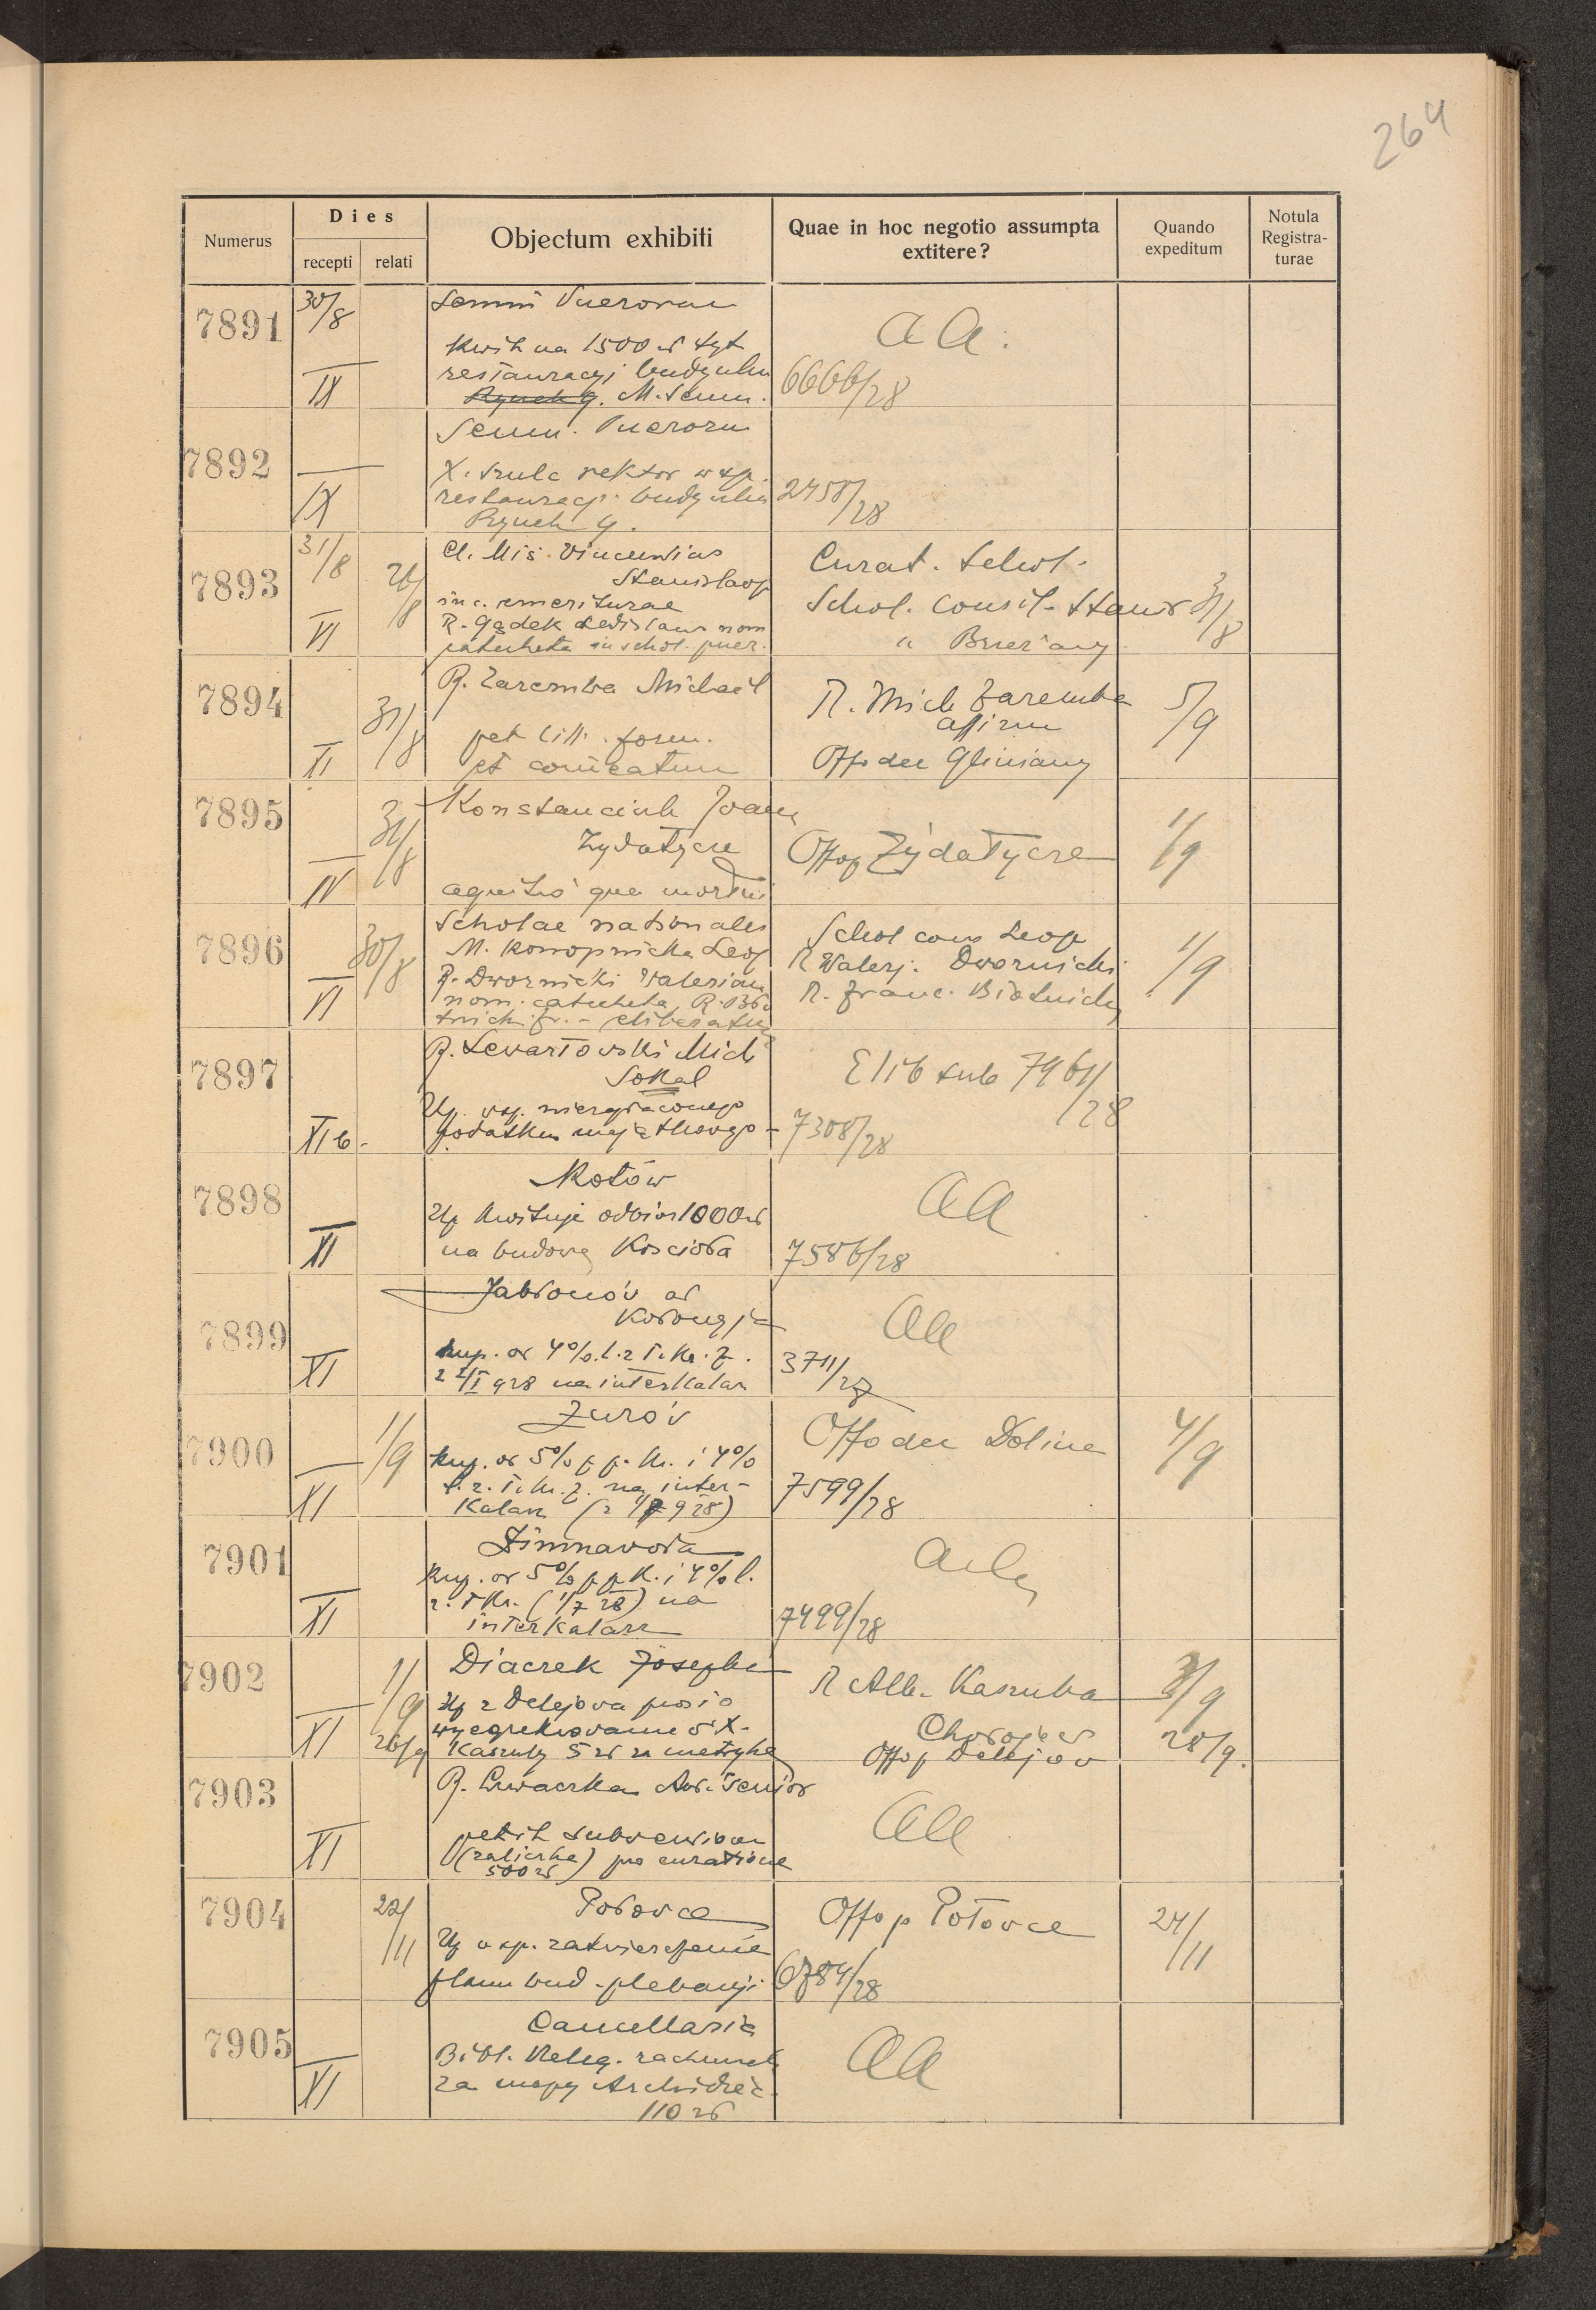 264
Numerus
Dies
recepti
relati
Objectum exhibiti
Quae in hoc negotio assumpta
extitere?
Quando
expeditum
Notula
Registra-
turae
7891
30/8
IX
Semin Puerorum
Kwit na 1500 zł tyt
restauracji budynku
Rynek 9. M. Semin.
aa.
6666/28
7892
IX
Semin. Puerorum
X. Szulc rektor w sp.
restauracji budynku
Rynek 9.
2458/28
7893
31/8
VI
Cl. Mis. Vincentius
Stanislaop
inc. emeriturae
R. Gądek Ladislaus nom
catecheta in schol. puer.
Curat. Schol.
Schol. Consil. Stanisł
" Brzeżany
31/8
7894
XI
31/8
R. Zaremba Michaël
pet litt. form.
et comeatum
R. Mich Zaremba
affirm
Offo dec Gliniany
5/9
7895
IV
31/8
Konstanciuk Joann
Żydatycze
agnitio qua mortui
Offop Żydatycze
1/9
7896
VI
30/8
Scholae nationales
M. Konopnicka Leop
R. Dwornicki Valerian
nom. catecheta, R. Bło
tnicki fr. - eliberatur
Schol cons Leop
R Walerj. Dwornicki
R. Franc. Błotnicki
1/9
7897
XI b.
R. Lewartowski Mich
Sokal
Up. wsp. niezapłaconego
podatku majątkowego
Elib sub 7961/28
7308/28
7898
XI
Rotów
Up kwituje odbiór 1000 zł
na budowę Kościoła
aa
7586/28
7899
XI
Jabłonów ad
Kołomyja
kup. od 4% l. z T. Kr. Z.
z 2/I 928 na interkalar
aa
3711/28
7900
XI
1/9
Żurów
kup. od 5% p p. K. i 4%
l. z. T. Kr. Z. na inter-
kalar (z 1/7 928)
Offo dec Dolina
7599/28
4/9
7901
XI
Zimnawoda
kup. od 5% p p K. i 4% l.
z. T Kr. (1/7 28) na
interkalarz
aa
7499/28
7902
XI
1/9
26/9
Diaczek Josephi
Up z Delejowa prosi o
wyegzekwowanie od X.
Kaszuby 5 zł za metrykę
R Alb. Kaszuba
Offop Delejow
3/9
28/9.
7903
XI
petit subvention
(zaliczkę) pro curatione
500 zł
aa
7904
22/11
Potowce
Up w sp. zatwierdzenie
planu bud. plebanji
Offop Potowce
6784/28
24/11
7905
XI
Cancellaria
Bibl. Relig. rachunek
za mapy Archidiec.
110 zł
aa